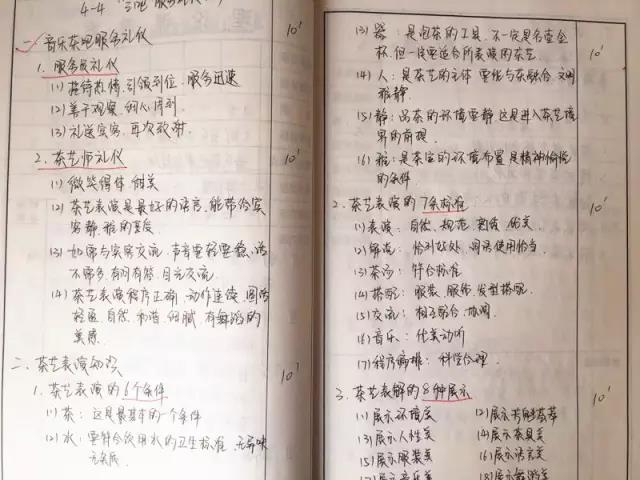 4-4
一 音乐茶吧服务礼仪
10′
1. 服务员礼仪
(1) 接待热情、引领到位、服务迅速
(2) 善于观察、细心周到
(3) 礼送宾客、再次致谢
2. 茶艺师礼仪
10′
(1) 微笑得体 甜美
(2) 茶艺表演是最好的语言、能带给宾
客静、雅的享受
(3) 如需与宾客交流、声音要轻要稳、话
不需多、有问有答、目光交流
(4) 茶艺表演程序正确、动作连续、圆活
轻盈、自然、和谐、细腻 有舞蹈的
美感
二、茶艺表演知识
10′
1. 茶艺表演的6个条件
(1) 茶：这是最基本的一个条件
(2) 水：要符合饮用水的卫生标准、无异味
无杂质
(3) 器：是泡茶的工具、不一定是名壶金
杯、但一定要适合所表演的茶艺
10′
(4) 人：是茶艺的主体 要能与茶融合、文明
雅静
(5) 静：品茶的环境要静、这是进入茶艺境
界的前提
(6) 雅：是茶室的环境布置 是精神愉悦
的条件
2. 茶艺表演的7条标准
10′
(1) 表演：自然、规范、熟练、优美
(2) 解说：恰到好处、用语使用恰当
(3) 茶汤：符合标准
(4) 搭配：服装、服饰、发型搭配
(5) 交流：相互配合、协调
(6) 音乐：优美动听
(7) 程序编排：科学合理
3. 茶艺表解的8种展示
10′
(1) 展示环境美 (2) 展示茶
(3) 展示人性美 (4) 展示茶具美
(5) 展示服装美 (6) 展示语言美
(7) 展示音乐美 (8) 展示舞蹈美